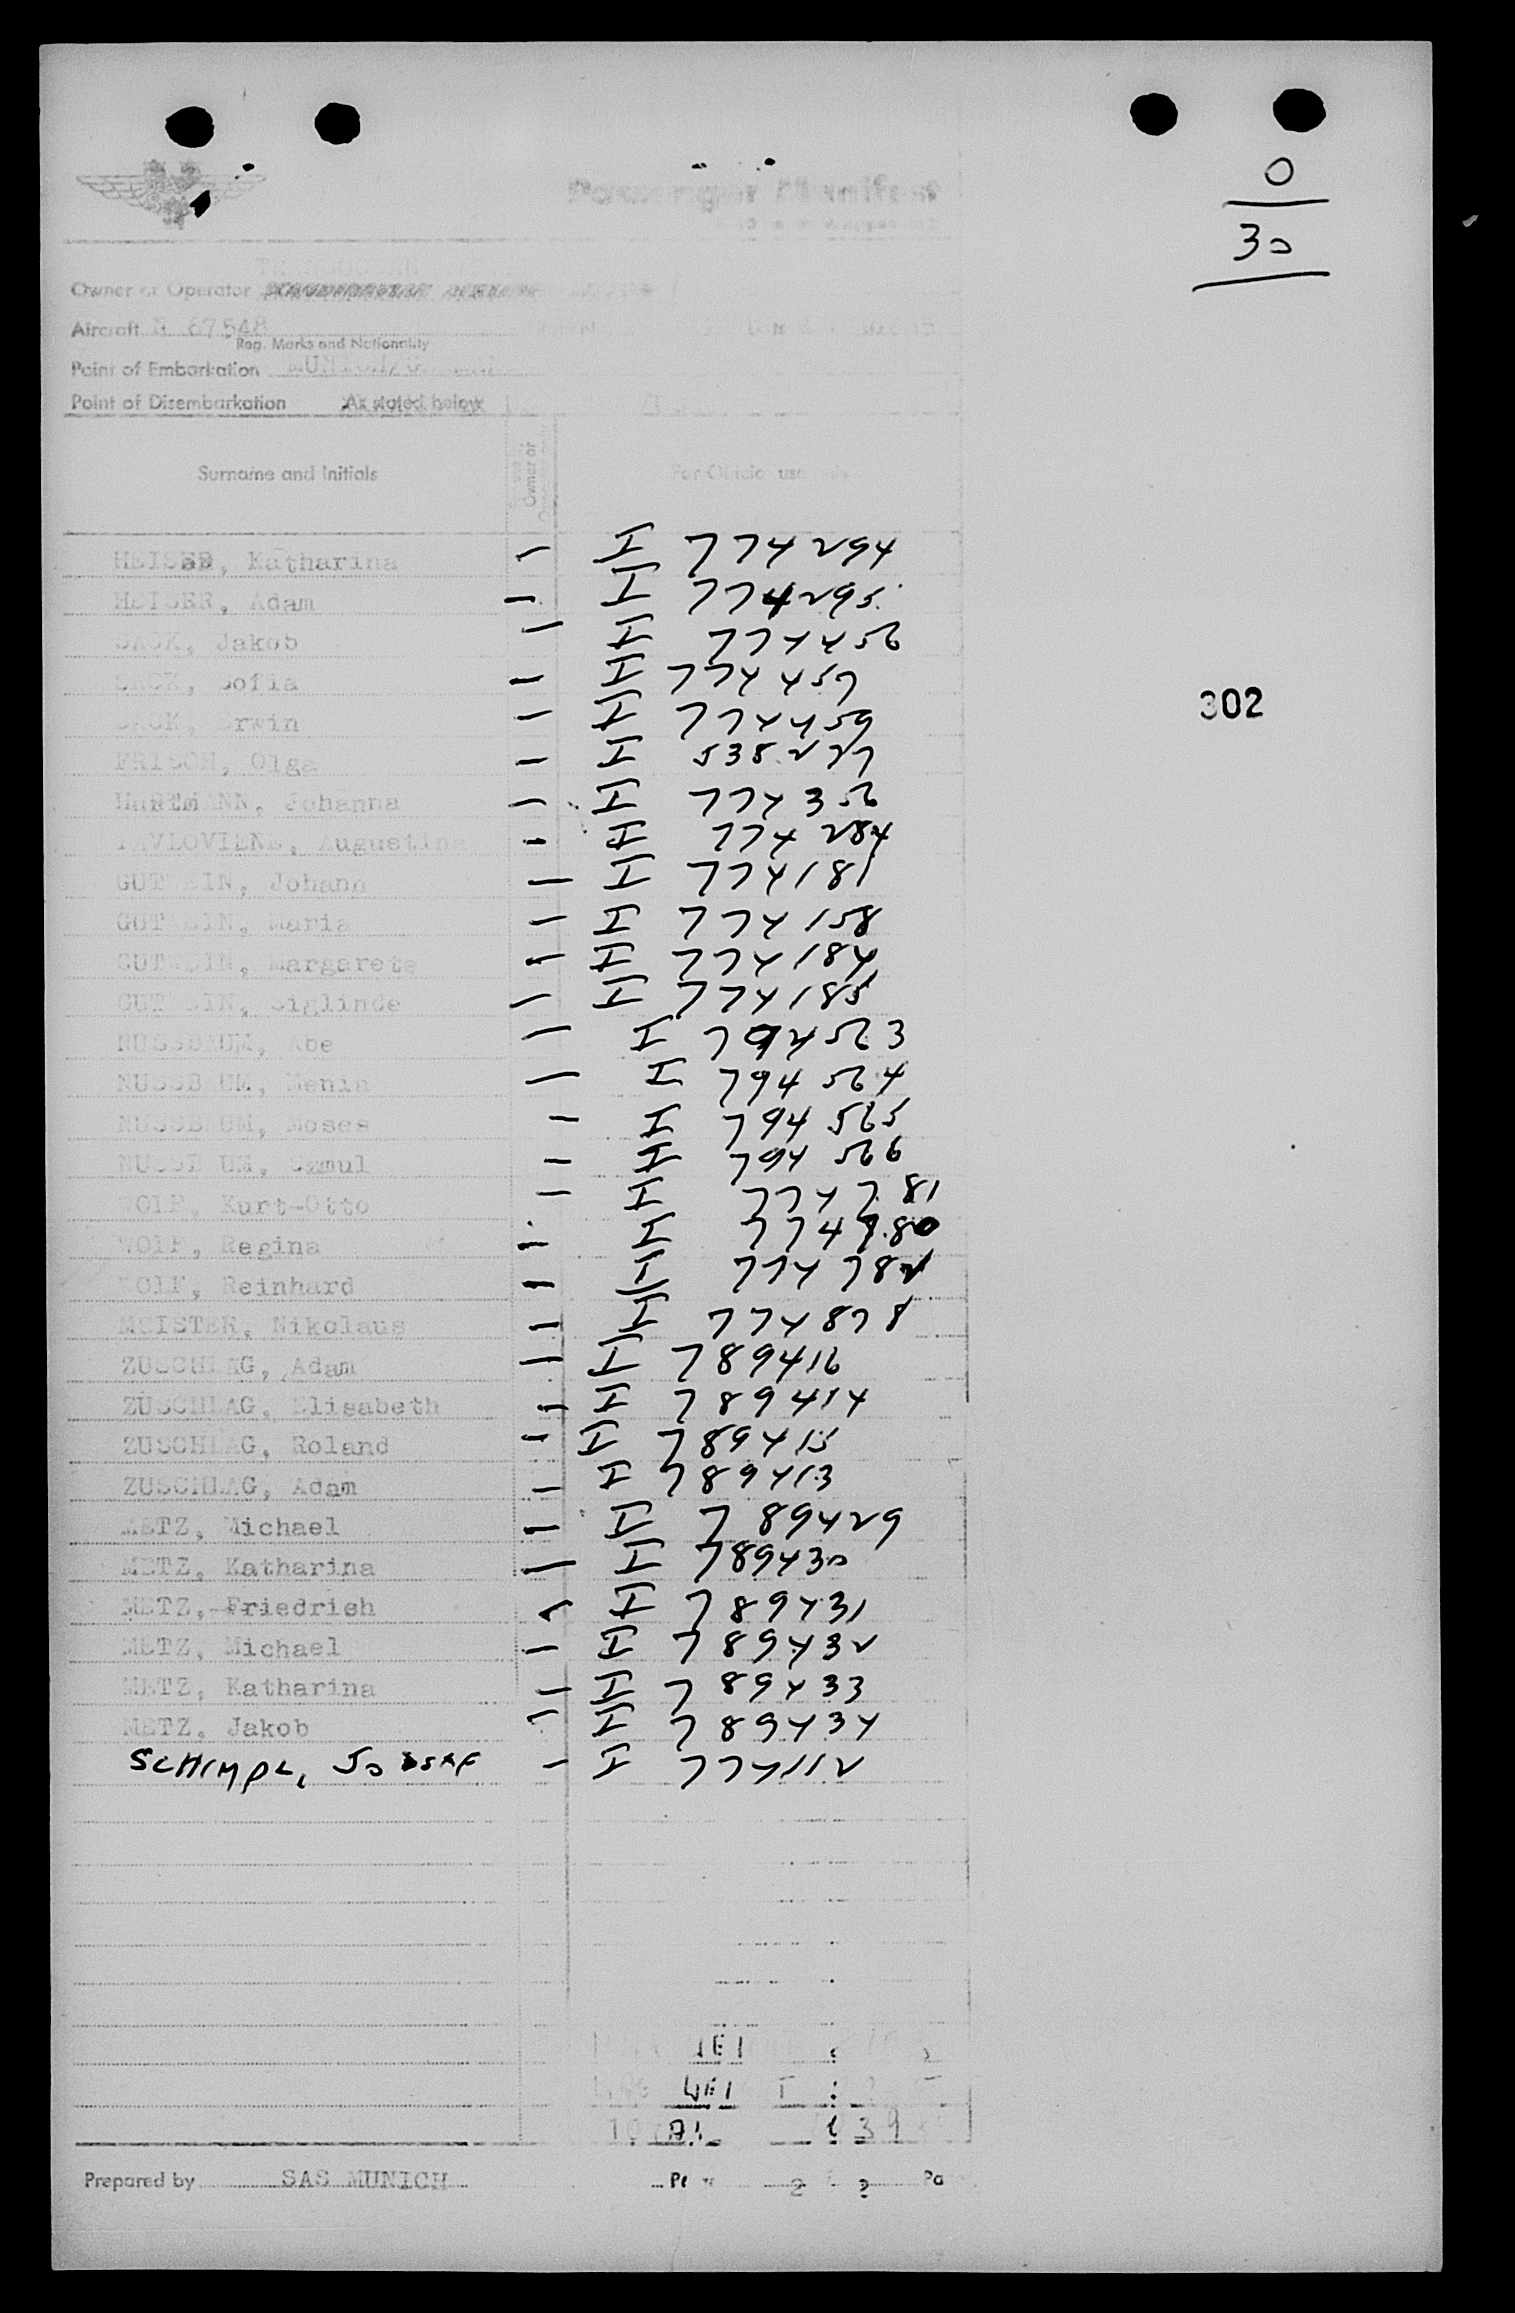 Passenger Manifest
0
30
Owner or Operator
Aircraft N 67548
Reg. Marks and Nationality
Point of Embarkation
Point of Disembarkation As stated below
Surname and Initials Owner or For Official use
HEISER, Katharina - I 774294
HEISER, Adam - I 774295
SACK, Jakob - I 774456
SACK, Sofia - I 774457
302
SACK, Erwin - I 774459
FRISCH, Olga - I 538277
HARTMANN, Johanna - I 774356
PAVLOVIENE, Augustina - I 774284
GUTWEIN, Johann - I 774181
GUTWEIN, Maria - I 774158
GUTWEIN, Margarete - I 774184
GUTWEIN, Siglinde - I 774185
NUSSBAUM, Abe - I 794563
NUSSBAUM, Menia - I 794564
NUSSBAUM, Moses - I 794565
NUSSBAUM, Samul - I 794566
WOLF, Kurt-Otto - I 774781
WOLF, Regina - I 774780
WOLF, Reinhard - I 774782
MEISTER, Nikolaus - I 774878
ZUSCHLAG, Adam - I 789416
ZUSCHLAG, Elisabeth - I 789414
ZUSCHLAG, Roland - I 789415
ZUSCHLAG, Adam - I 789413
METZ, Michael - I 789429
METZ, Katharina - I 789430
METZ, Friedrich - I 789431
METZ, Michael - I 789432
METZ, Katharina - I 789433
METZ, Jakob - I 789434
SCHIMPL, JOSSEF - I 774112
Prepared by SAS MUNICH 2